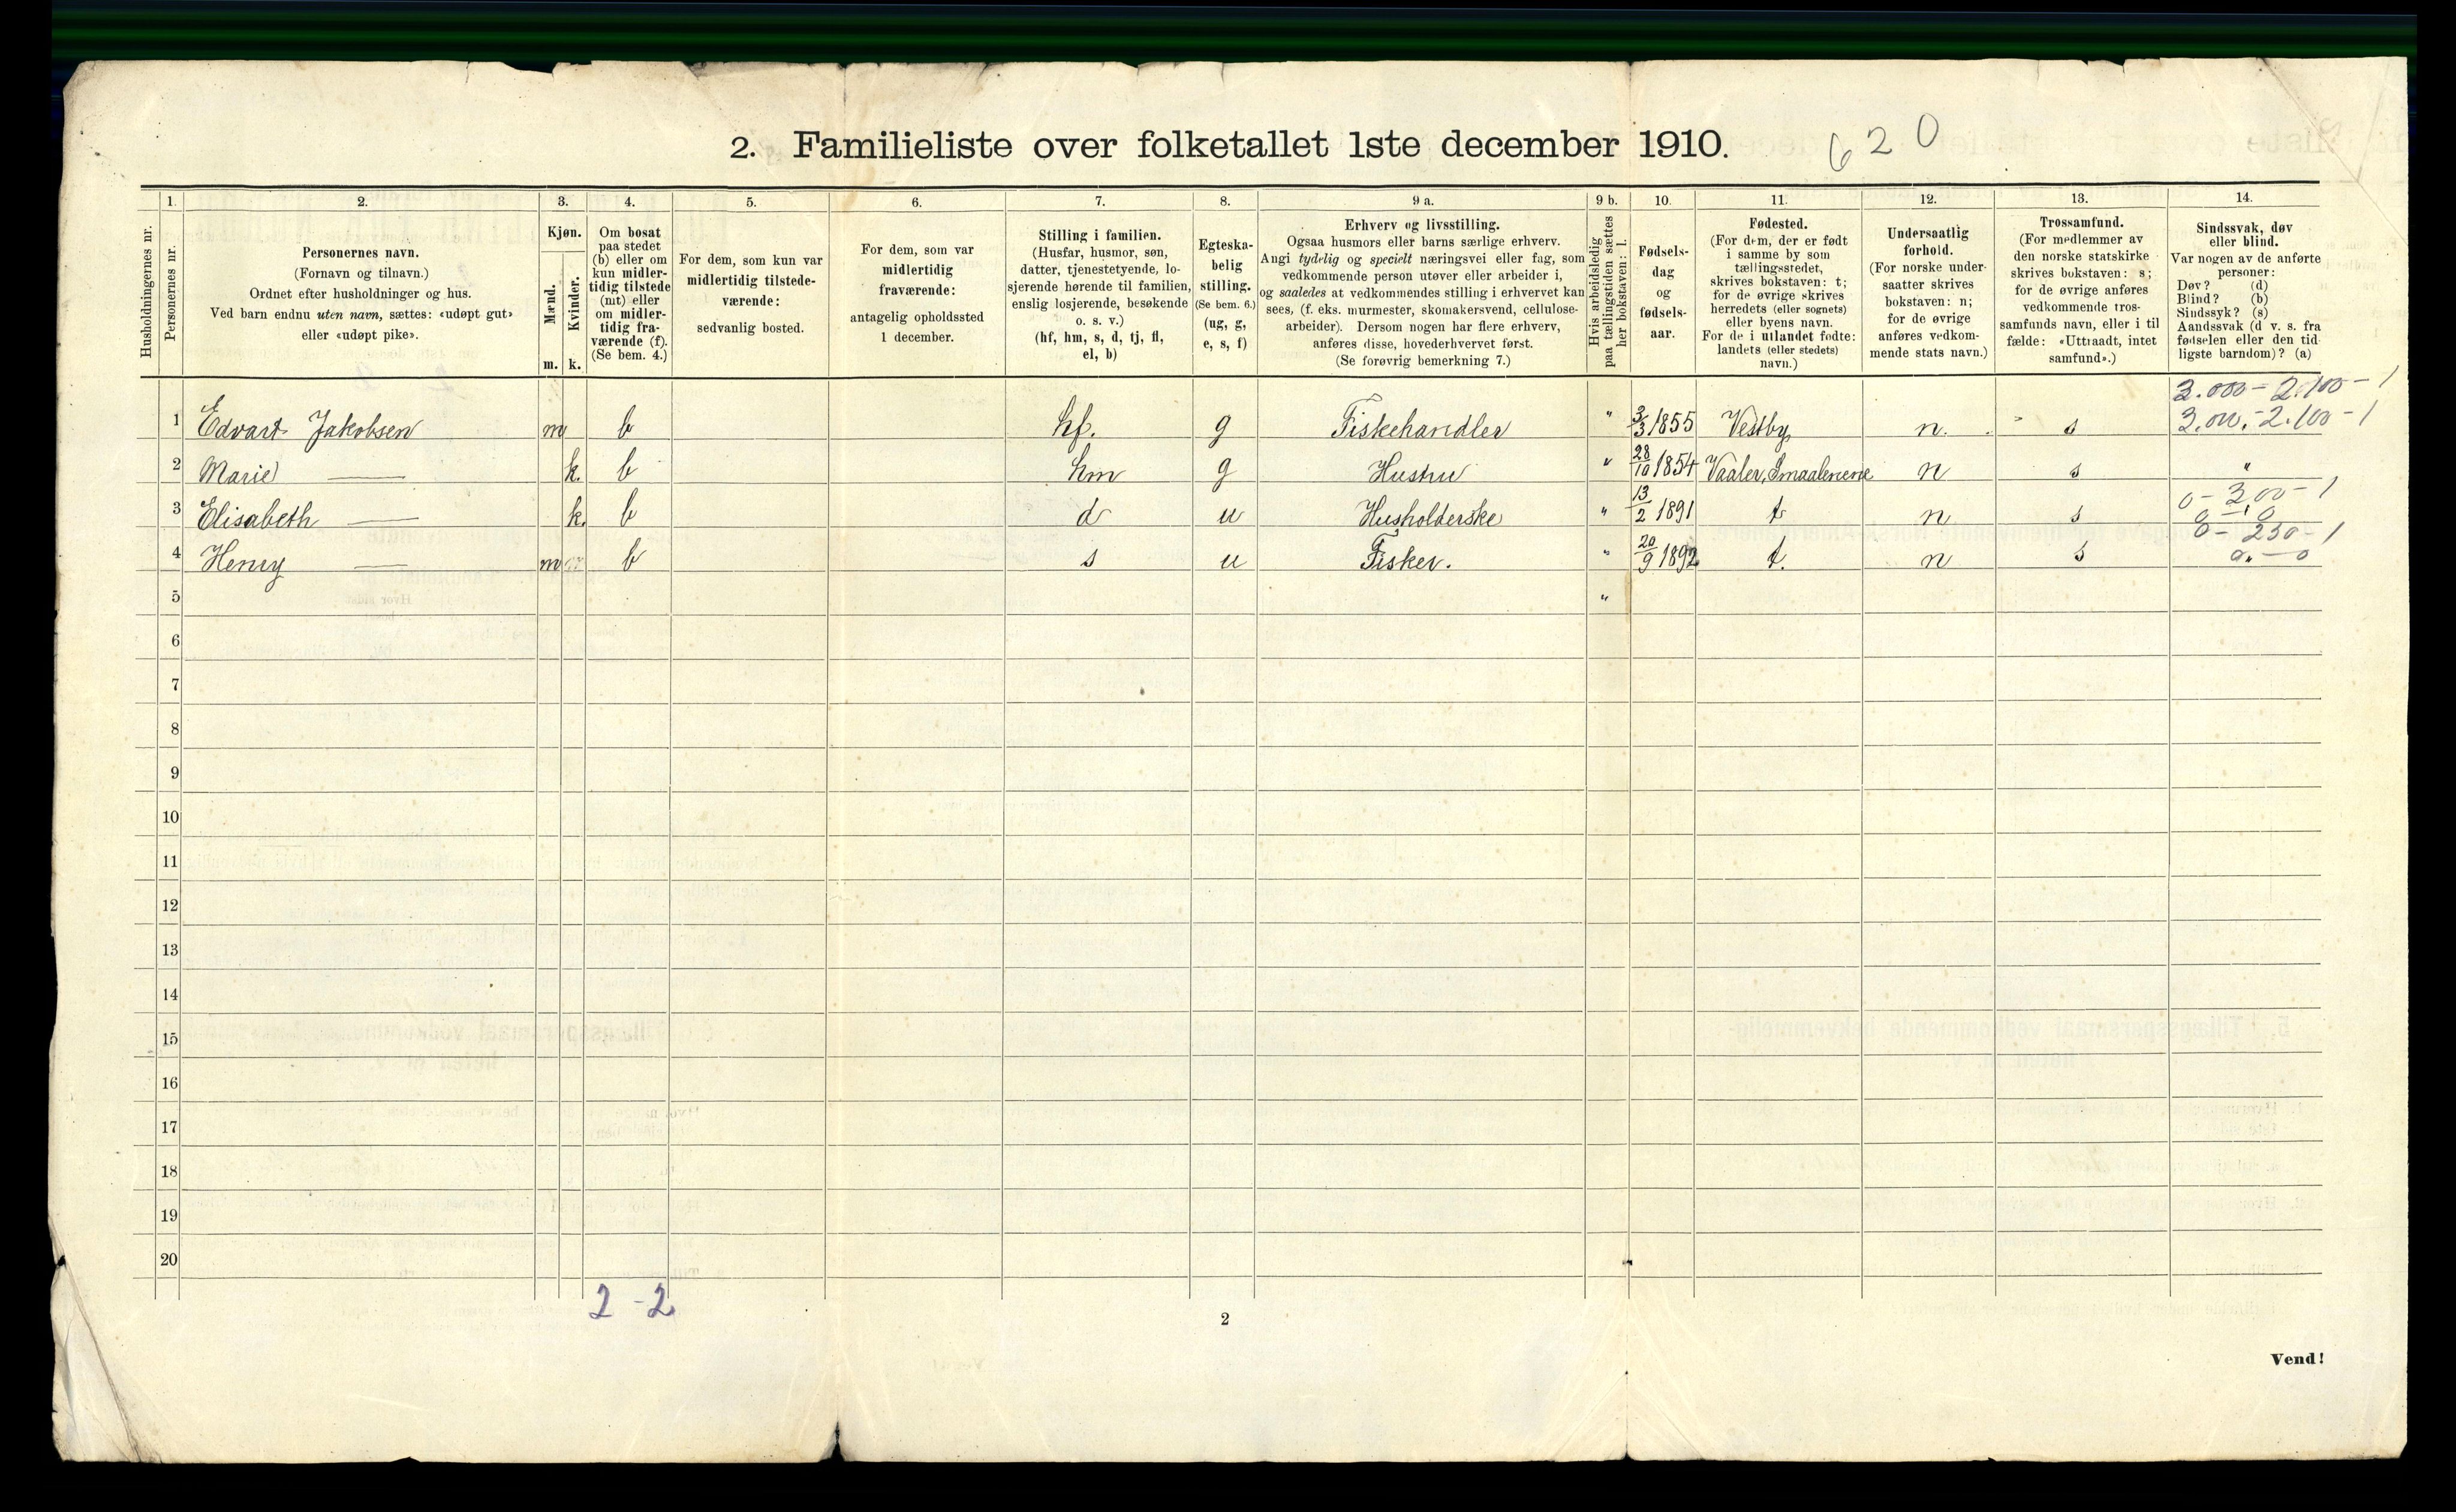 2. Familieliste over folketallet 1ste december 1910.
620
1. 2. 3. 4. 5. 6. 7. 8. 9 a. 9 b. 10. 11. 12. 13. 14.
Husholdningernes nr.
Personernes nr.
Personernes navn.
(Fornavn og tilnavn.)
Ordnet efter husholdninger og hus.
Ved barn endnu uten navn, sættes: «udøpt gut»
eller «udøpt pike».
Kjøn.
Mænd.
m.
Kvinder.
k.
Om bosat
paa stedet
(b) eller om
kun midler-
tidig tilstede
(mt) eller
om midler-
tidig fra-
værende (f).
(Se bem. 4.)
For dem, som kun var
midlertidig tilstede-
værende:
sedvanlig bosted.
For dem, som var
midlertidig
fraværende:
antagelig opholdssted
1 december.
Stilling i familien.
(Husfar, husmor, søn,
datter, tjenestetyende, lo-
sjerende hørende til familien,
enslig losjerende, besøkende
o. s. v.)
(hf, hm, s, d, tj, fl,
el, b)
Egteska-
belig
stilling.
(Se bem. 6.)
(ug, g,
e, s, f)
Erhverv og livsstilling.
Ogsaa husmors eller barns særlige erhverv.
Angi tydelig og specielt næringsvei eller fag, som
vedkommende person utøver eller arbeider i,
og saaledes at vedkommendes stilling i erhvervet kan
sees, (f. eks. murmester, skomakersvend, cellulose-
arbeider). Dersom nogen har flere erhverv,
anføres disse, hovederhvervet først.
(Se forøvrig bemerkning 7.)
Hvis arbeidsledig
paa tællingstiden sættes
her bokstaven: l.
Fødsels-
dag
og
fødsels-
aar.
Fødested.
(For dem, der er født
i samme by som
tællingsstedet,
skrives bokstaven: t;
for de øvrige skrives
herredets (eller sognets)
eller byens navn.
For de i utlandet fødte:
landets (eller stedets)
navn.)
Undersaatlig
forhold.
(For norske under-
saatter skrives
bokstaven: n;
for de øvrige
anføres vedkom-
mende stats navn.)
Trossamfund.
(For medlemmer av
den norske statskirke
skrives bokstaven: s;
for de øvrige anføres
vedkommende tros-
samfunds navn, eller i til
fælde: «Uttraadt, intet
samfund».)
Sindssvak, døv
eller blind.
Var nogen av de anførte
personer:
Døv? (d)
Blind? (b)
Sindssyk? (s)
Aandssvak (d v. s. fra
fødselen eller den tid
ligste barndom)? (a)
3.000 - 2.100 - 1
1 Edvart Jakobsen m b hf. g Fiskehandler " 3/3 1855 Vestby n. s 3.000.-2.100-1
2 Marie — k. b hm g Hustru " 28/10 1854 Vaaler, Smaalenene n s "
0 - 300 - 1
3 Elisabeth — k. b d u Husholderske " 13/2 1891 t n s 0 — 0
0 - 250 - 1
4 Henry — m b s u Fisker. " 20/9 1892 t. n s 0 — 0
5 "
6
7
8
9
10
11
12
13
14
15
16
17
18
19
20
2 - 2
2
Vend!